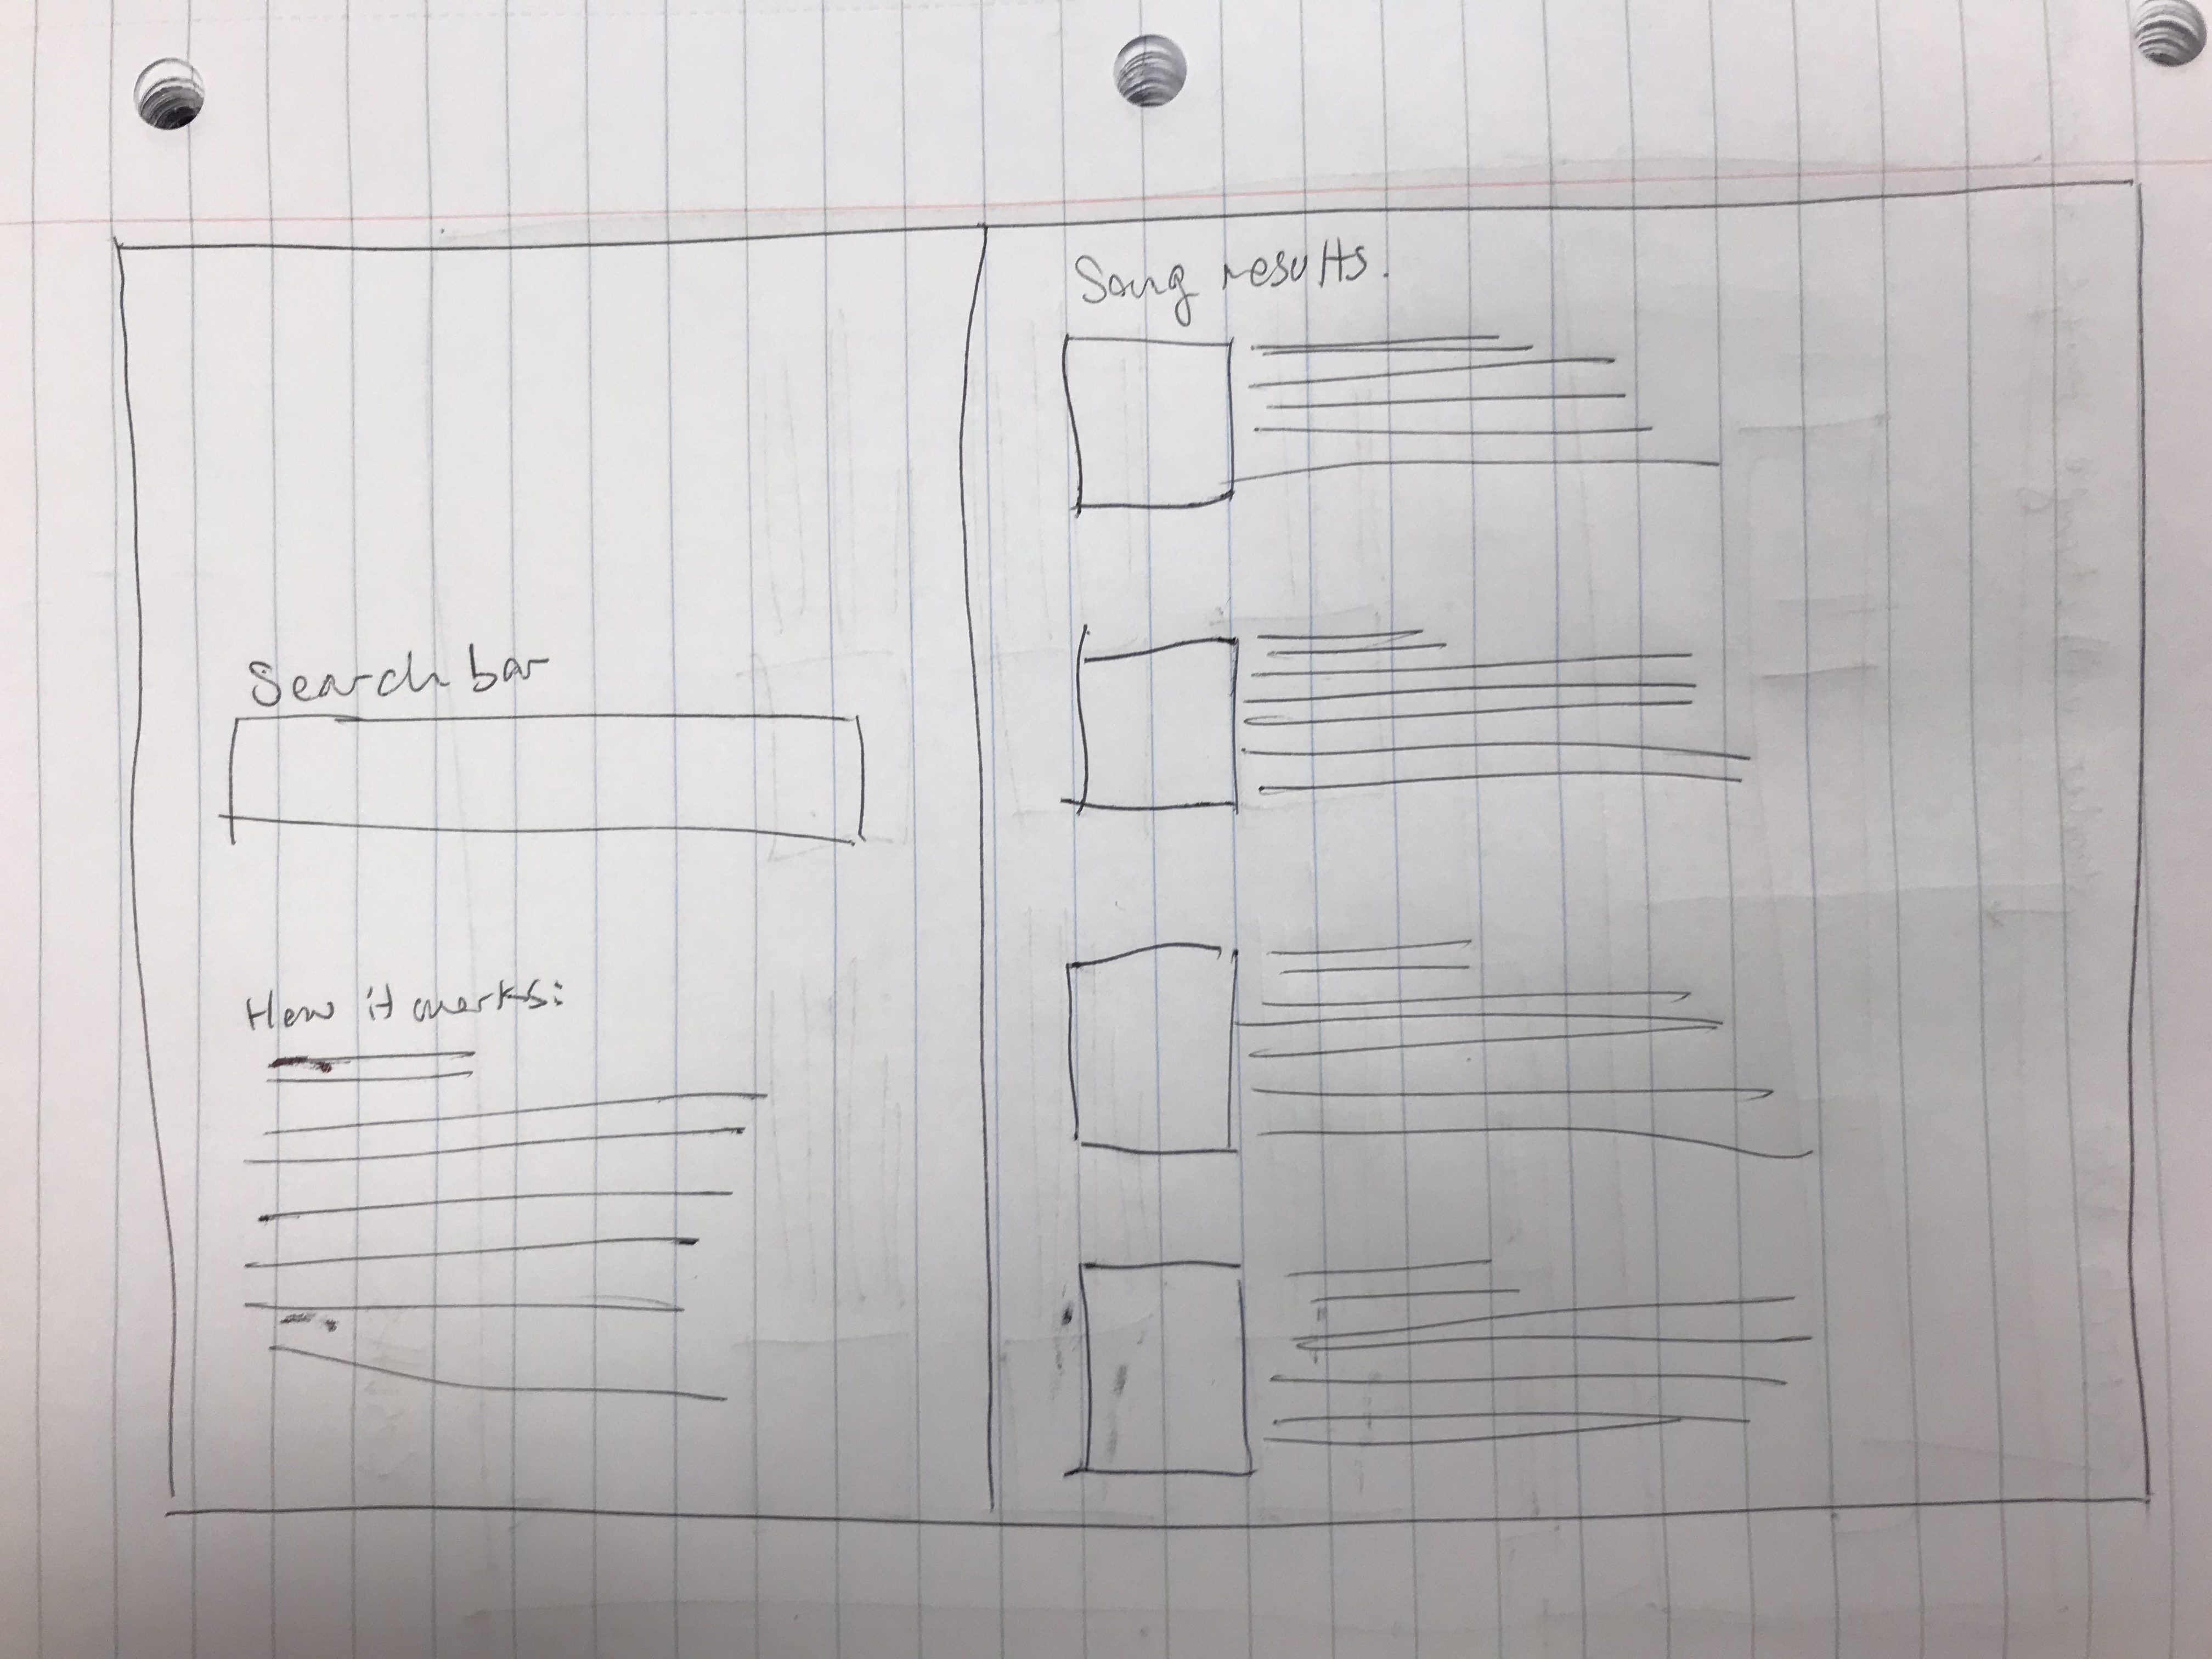 Search bar
How it works:
Song results.